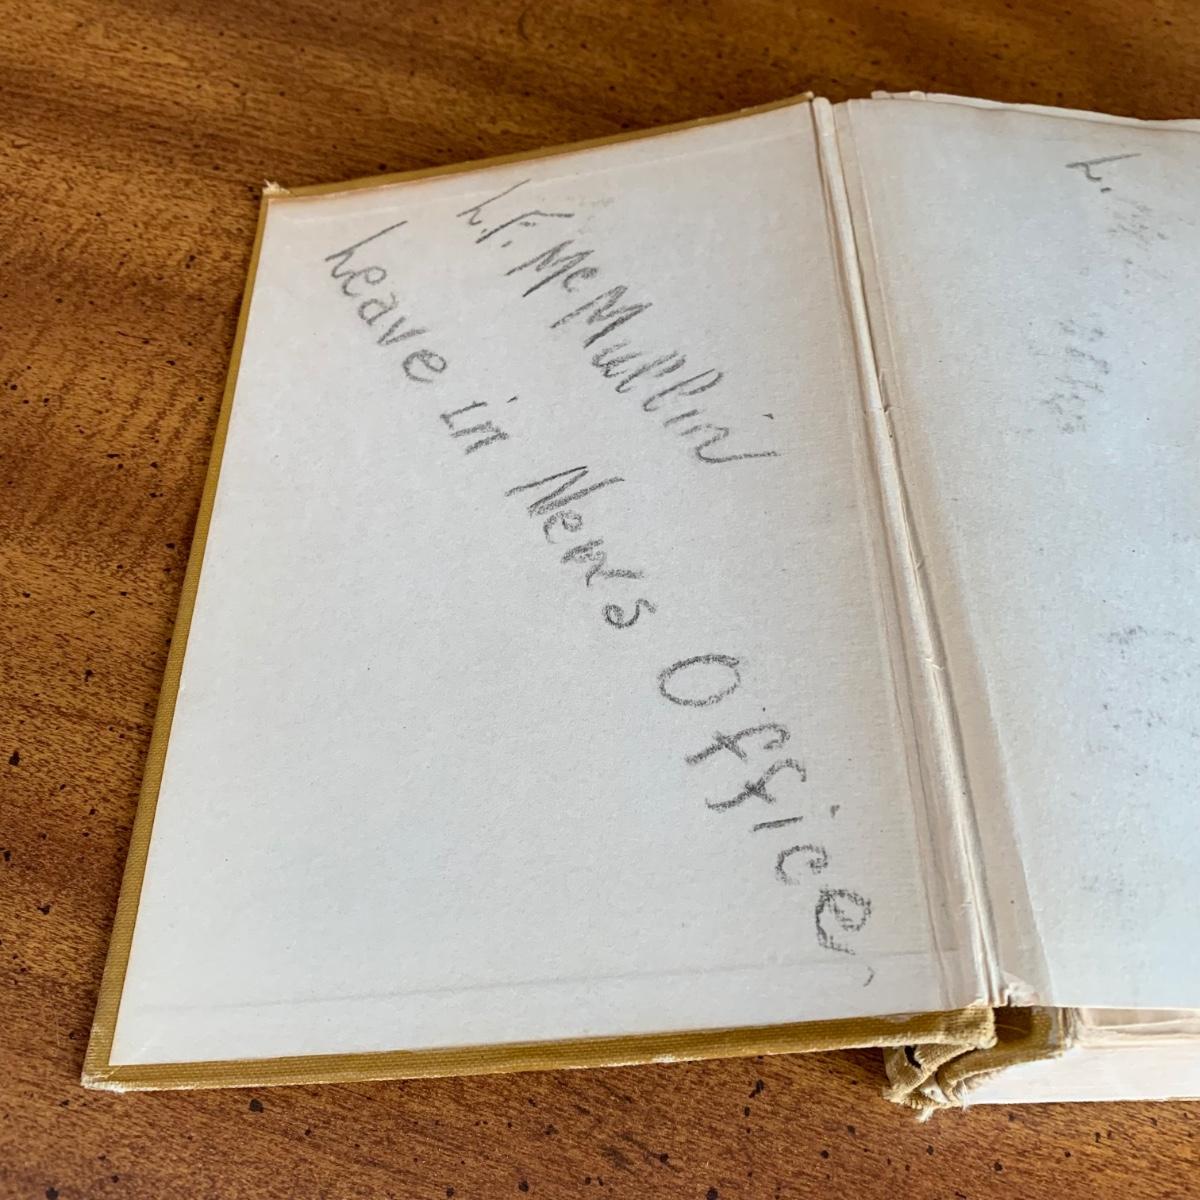 L.F. McMullin
Leave in News Office
L.